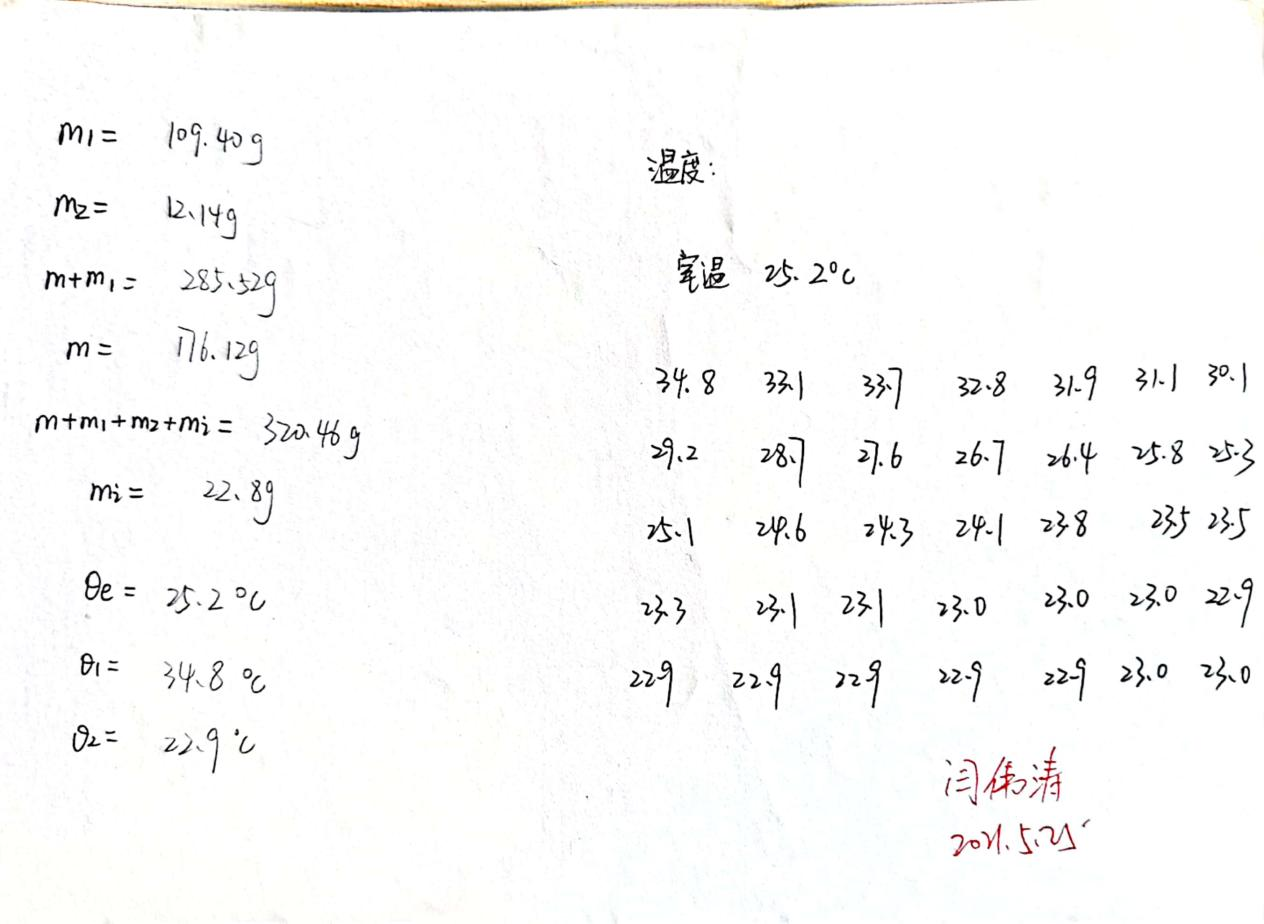 m1= 109.40g
m2= 12.14g
m+m1= 285.52g
m= 176.12g
m+m1+m2+mi= 320.46g
mi= 22.8g
θe= 25.2°C
θ1= 34.8°C
θ2= 22.9°C
温度:
室温 25.2°C
34.8 33.1 33.7 32.8 31.9 31.1 30.1
29.2 28.7 27.6 26.7 26.4 25.8 25.3
25.1 24.6 24.3 24.1 23.8 23.5 23.5
23.3 23.1 23.1 23.0 23.0 23.0 22.9
22.9 22.9 22.9 22.9 22.9 23.0 23.0
闫伟涛
2021.5.25